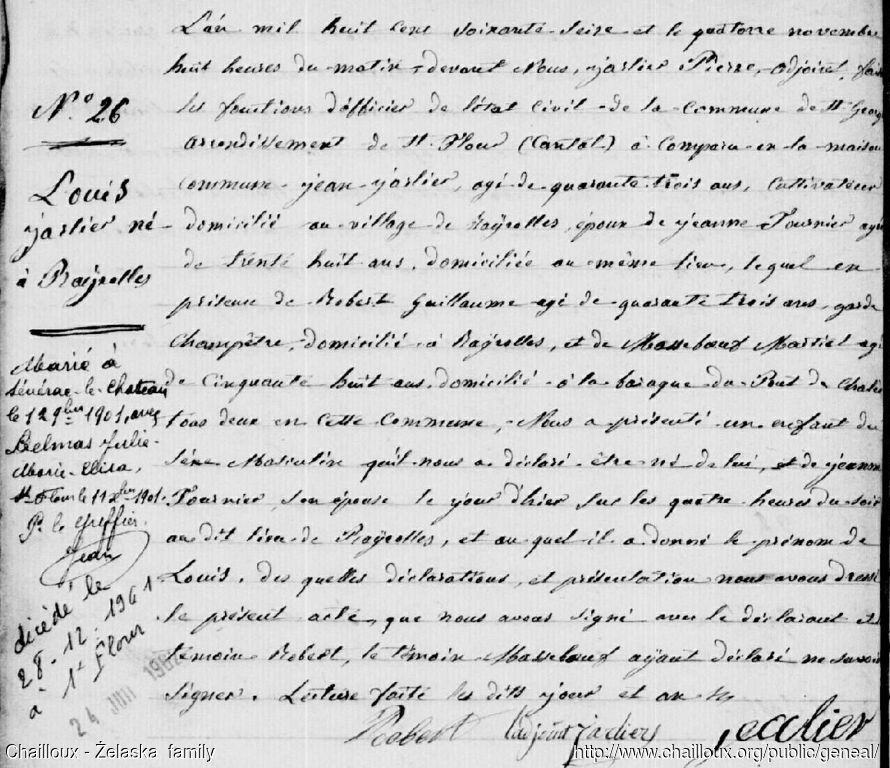 N.o 26
Louis
jarlier né
à Rayrolles
Marié à
Sévérac-le-Chateau
le 12 9bre 1901, avec
Delmas Julie-
Marie-Elisa,
St Flour le 11 xbre 1901.
Pr le Greffier.
Jean
décédé le
28.12.1961
à St Flour
24 JUIL 1962
L'an mil huit cent soixante seize et le quatorze novembre
huit heures du matin, devant Nous, jarlier Pierre, adjoint, fais
les fonctions d'officier de l'état civil de la commune de St George
arrondissement de St Flour (Cantal) à comparu en la maison
commune jean jarlier, agé de quarante trois ans, cultivateur
domicilié au village de Rayrolles, époux de jeanne Tournier agé
de trente huit ans, domiciliée au même lieu, lequel en
présence de Robert Guillaume agé de quarante trois ans, garde
Champêtre, domicilié à Rayrolles, et de Massebœuf Martial agé
de cinquante huit ans, domicilié à la baraque du Pont de
tous deux en cette commune, Nous a présenté un enfant du
séxe Masculin qu'il nous a déclaré être né de lui, et de jeanne
Tournier, son épouse le jour d'hier sur les quatre heures du soir
au dit lieu de Rayrolles, et au quel il a donné le prénom de
Louis. des quelles déclarations, et présentation nous avons dressé
le présent acte, que nous avons signé avec le déclarant et
témoin Robert, le témoin Massebœuf ayant déclaré ne savoir
signer. Lecture faite les dits jour et an
Robert l'adjoint jarlier jearlier
Chailloux - Żelaska family http://www.chailloux.org/public/geneal/